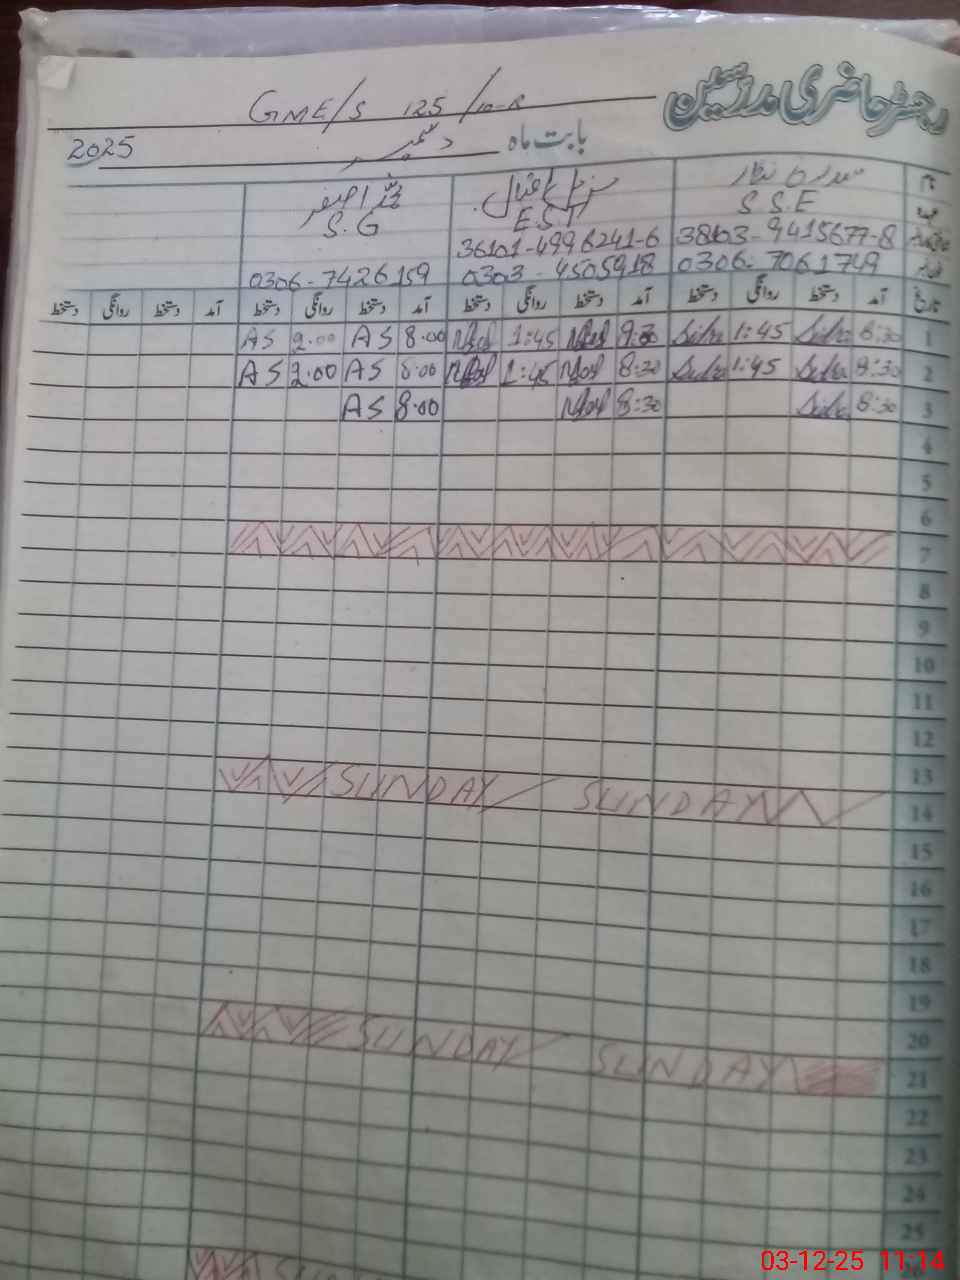 رجسٹر حاضری مدرسین
GME/S 125/10-R
بابت ماہ دسمبر 2025
نام
محمد اصغر
S.S.E E.S.T S.G
38103-9415677-8 36101-4996241-6
0306-7061749 0303-4505918 0306-7426159
تاریخ آمد دستخط روانگی دستخط آمد دستخط روانگی دستخط آمد دستخط روانگی دستخط آمد دستخط روانگی دستخط
1 8:30 1:45 8:30 1:45 8.00 AS 2.00 AS
2 8:30 1:45 8:30 1:45 8.00 AS 2.00 AS
3 8:30 8:30 8.00 AS
4
5
6
7
8
9
10
11
12
13
14 SUNDAY SUNDAY
15
16
17
18
19
20
21 SUNDAY SUNDAY
22
23
24
25
03-12-25 11:14